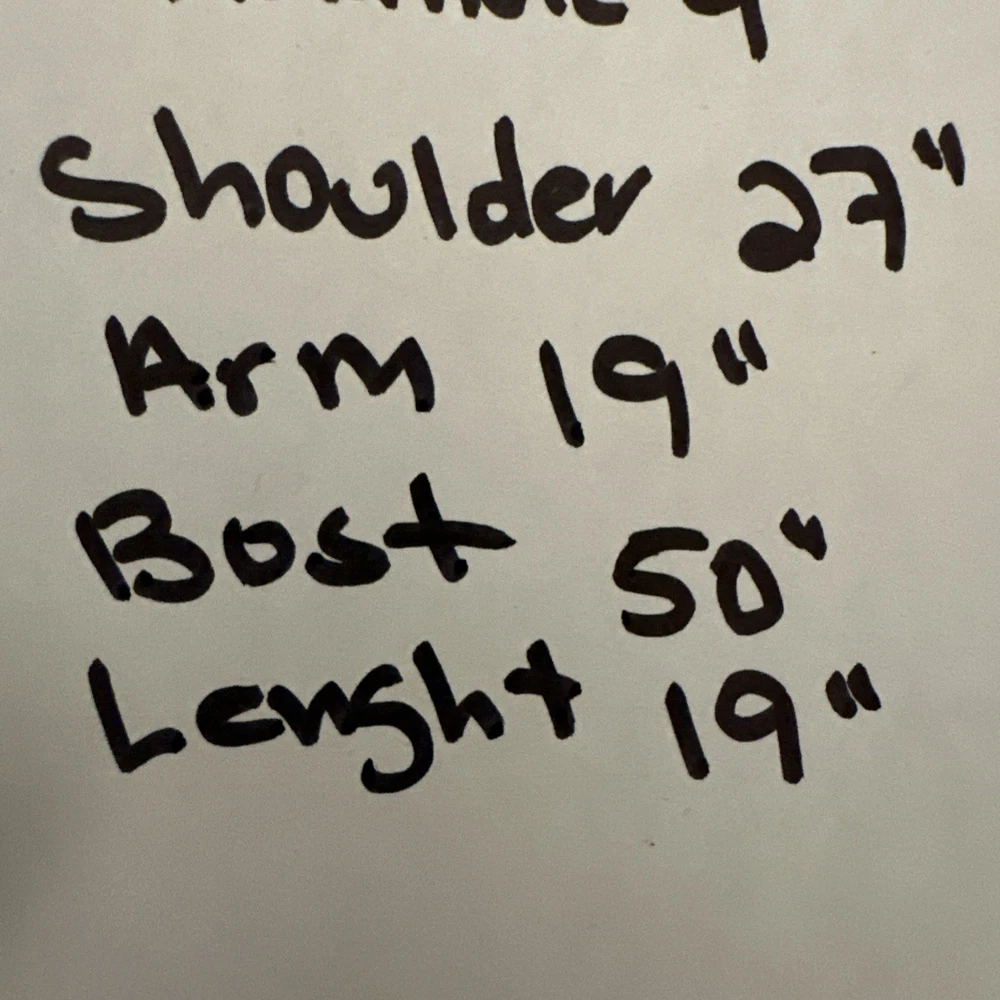 Shoulder 27"
Arm 19"
Bost 50"
Lenght 19"